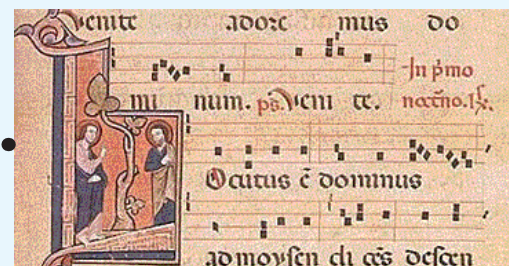 Venite adore mus do
In p̄mo
mi num. ps̄. Veni te. noct̄no. R̄.
Ocutus ē dominus
ad moysen di cēs descen